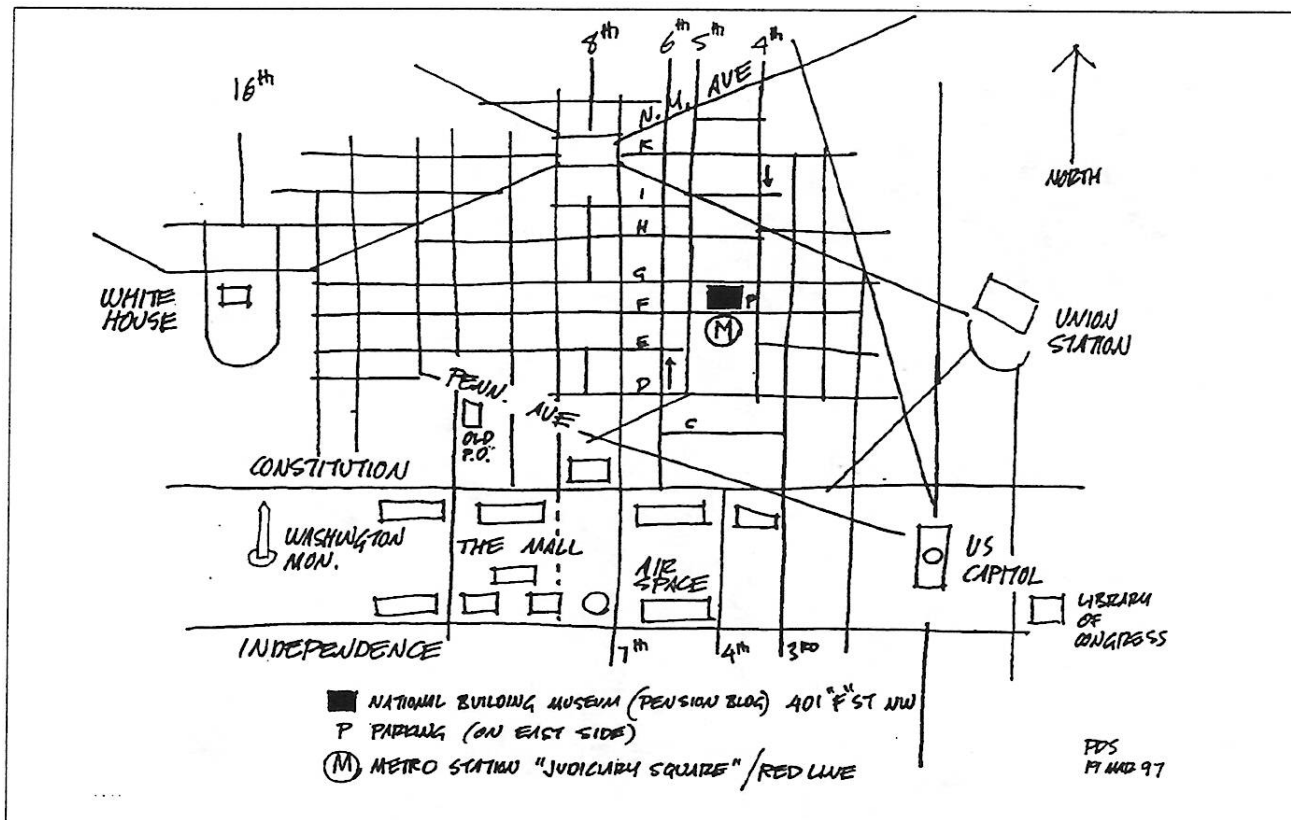 16th
8th
6th
5th
4th
N.Y. AVE
K
I
H
G
F
E
D
C
P
M
NORTH
WHITE
HOUSE
UNION
STATION
PENN. AVE
OLD
P.O.
CONSTITUTION
WASHINGTON
MON.
THE MALL
AIR
SPACE
US
CAPITOL
LIBRARY
OF
CONGRESS
INDEPENDENCE
7th
4th
3RD
NATIONAL BUILDING MUSEUM (PENSION BLDG) 401 "F" ST NW
P PARKING (ON EAST SIDE)
M METRO STATION "JUDICIARY SQUARE" / RED LINE
PDS
19 MAR 97